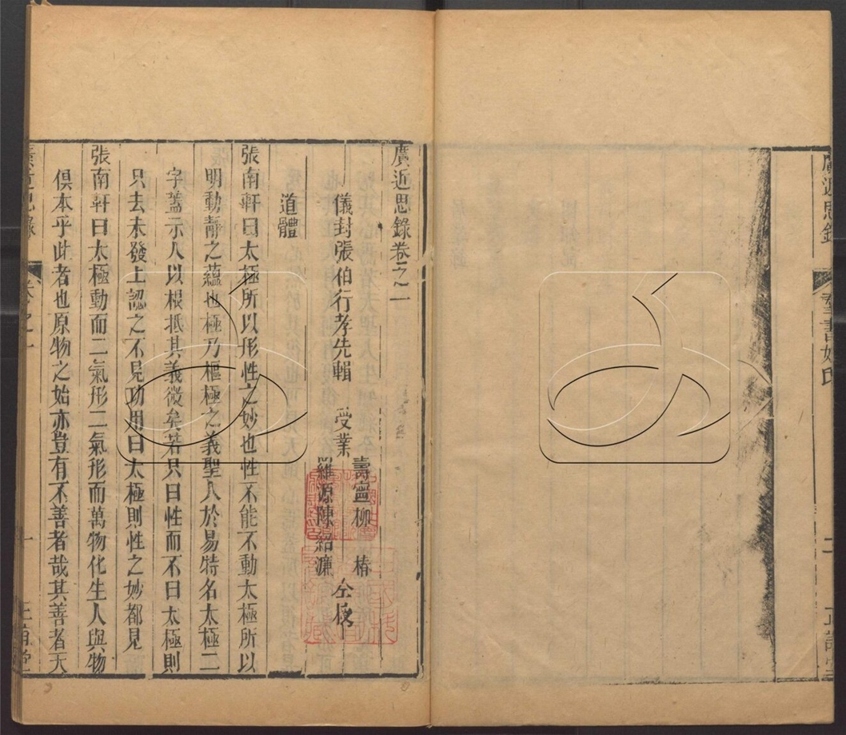 廣近思錄卷之一
儀封張伯行孝先輯 受業
壽寧柳 椿
羅源陳紹濂
仝校
道體
張南軒曰太極所以形性之妙也性不能不動太極所以
明動靜之蘊也極乃樞極之義聖人於易特名太極二
字蓋示人以根抵其義微矣若只曰性而不曰太極則
只去未發上認之不見功用曰太極則性之妙都見
張南軒曰太極動而二氣形二氣形而萬物化生人與物
俱本乎此者也原物之始亦豈有不善者哉其善者天
廣近思錄
卷之一
一
正誼堂
廣近思錄
羣書姓氏
二
正誼堂